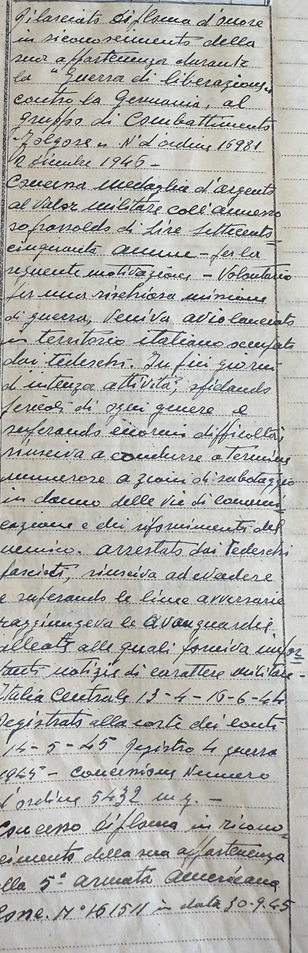 Rilasciato diploma d'onore
in riconoscimento della
sua appartenenza durante
la "Guerra di liberazione"
contro la Germania, al
gruppo di Combattimento
Folgore" N° d'ordine 16981
2 dicembre 1946 -
Concessa medaglia d'argento
al Valor militare coll'annesso
soprassoldo di Lire settecento
cinquanta annue - per la
seguente motivazione - Volontario
per una rischiosa missione
di guerra, veniva aviolanciato
in territorio italiano occupato
dai tedeschi. In più giorni
d'intensa attività, sfidando
pericoli di ogni genere e
superando enormi difficoltà,
riusciva a condurre a termine
numerose azioni di sabotaggio
in danno delle vie di comuni
cazione e dei rifornimenti del
nemico. arrestato dai tedeschi
fascisti, riusciva ad evadere
e superando le linee avversarie
raggiungeva le avanguardie
alleate alle quali forniva impor
tanti notizie di carattere militare -
Italia Centrale 13-4-15-6-44
Registrato alla corte dei conti
14-5-45 Registro 4 guerra
1945 - concessione Numero
d'ordine 5432 m.g. -
Concesso diploma in ricono-
scimento della sua appartenenza
alla 5ª armata americana
N° 161511 in data 30-9-45